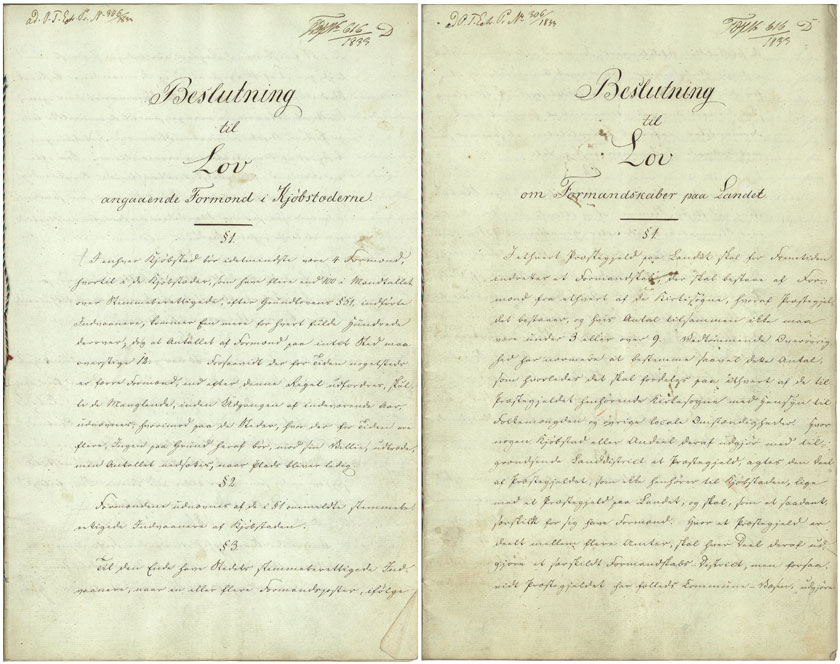 ad. O. T. Prot. No 306/1833
No 616
1833 D
Beslutning
til
Lov
angaaende Formænd i Kjøbstæderne.
§ 1.
I enhver Kjøbstad bør idetmindste være 4 Formænd,
hvortil i de Kjøbstæder, som have flere end 100 i Mandtallet
over Stemmeberettigede, efter Grundlovens § 51, indførte
Indvaanere, kommer Een mere for hvert fulde Hundrede
derover, dog at Antallet af Formænd paa intet Sted maa
overstige 12. Forsaavidt der for Tiden nogetsteds
er færre Formænd, end efter denne Regel udfordres, skulle
de Manglende, inden Udgangen af indeværende Aar,
udnævnes, hvorimod paa de Steder, hvor der for Tiden ere
flere, Ingen paa Grund heraf bør, mod sin Villie, udtræde,
men Antallet nedsættes, naar Plads bliver ledig.
§ 2.
Formændene udnævnes af de i § 1 ommeldte stemmebe-
rettigede Indvaanere af Kjøbstaden.
§ 3.
Til den Ende have Stedets stemmeberettigede Ind-
vaanere, naar een eller flere Formandsposter, ifølge
No 306/1833
No 616
1833 D
Beslutning
til
Lov
om Formandskaber paa Landet
§ 1
I ethvert Præstegjeld paa Landet skal for Fremtiden
indrettes et Formandskab, der skal bestaae af For-
mænd fra ethvert af de Kirkesogne, hvoraf Præstegjel-
det bestaaer, og hvis Antal tilsammen ikke maa
være under 3 eller over 9. Vedkommende Overøvrig-
hed har nærmere at bestemme saavel dette Antal,
som hvorledes det skal fordeles paa ethvert af de til
Præstegjeldet henhørende Kirkesogne med Hensyn til
Folkemængden og øvrige locale Omstændigheder. Hvor
nogen Kjøbstad eller Andeel deraf udgjør med til-
grændsende Landdistrict et Præstegjeld, agtes den Deel
af Præstegjeldet, som ikke henhører til Kjøbstaden, lige
med et Præstegjeld paa Landet, og skal, som et saadant,
særskilt for sig have Formænd. Hvor et Præstegjeld er
deelt mellem flere Amter, skal hver Deel deraf ud-
gjøre et særskildt Formandskabs-District, men forsaa-
vidt Præstegjeldet har fælleds Commune-Væsen, udgjøre